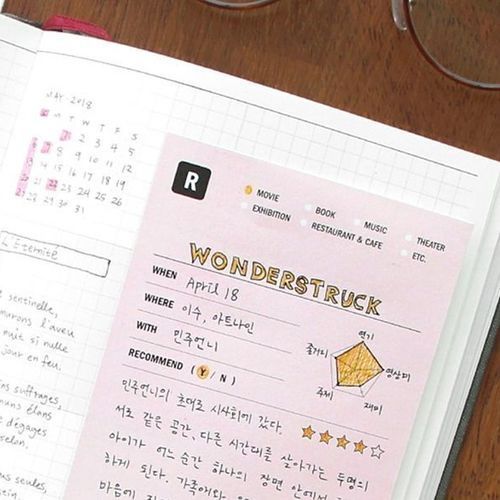 MAY 2018
S M T W T F S
1 2 3 4 5
6 7 8 9 10 11 12
13 14 15 16 17 18 19
20 21 22 23 24 25 26
27 28 29 30 31
L'Éternité
sentinelle,
murons l'aveu
nuit si nulle
jour en feu.
suffrages,
communs élans
dégages
selon.
seules,
R
MOVIE
BOOK
MUSIC
THEATER
EXHIBITION
RESTAURANT & CAFE
ETC.
WONDERSTRUCK
WHEN April 18
WHERE 이수, 아트나인
WITH 민주언니
RECOMMEND ( Y / N )
연기
줄거리
영상미
주제
재미
민주언니의 초대로 시사회에 갔다.
서로 같은 공간, 다른 시간대를 살아가는 두명의
아이가 어느 순간 하나의 장면 안에서
하게 된다. 가족애와
마음에